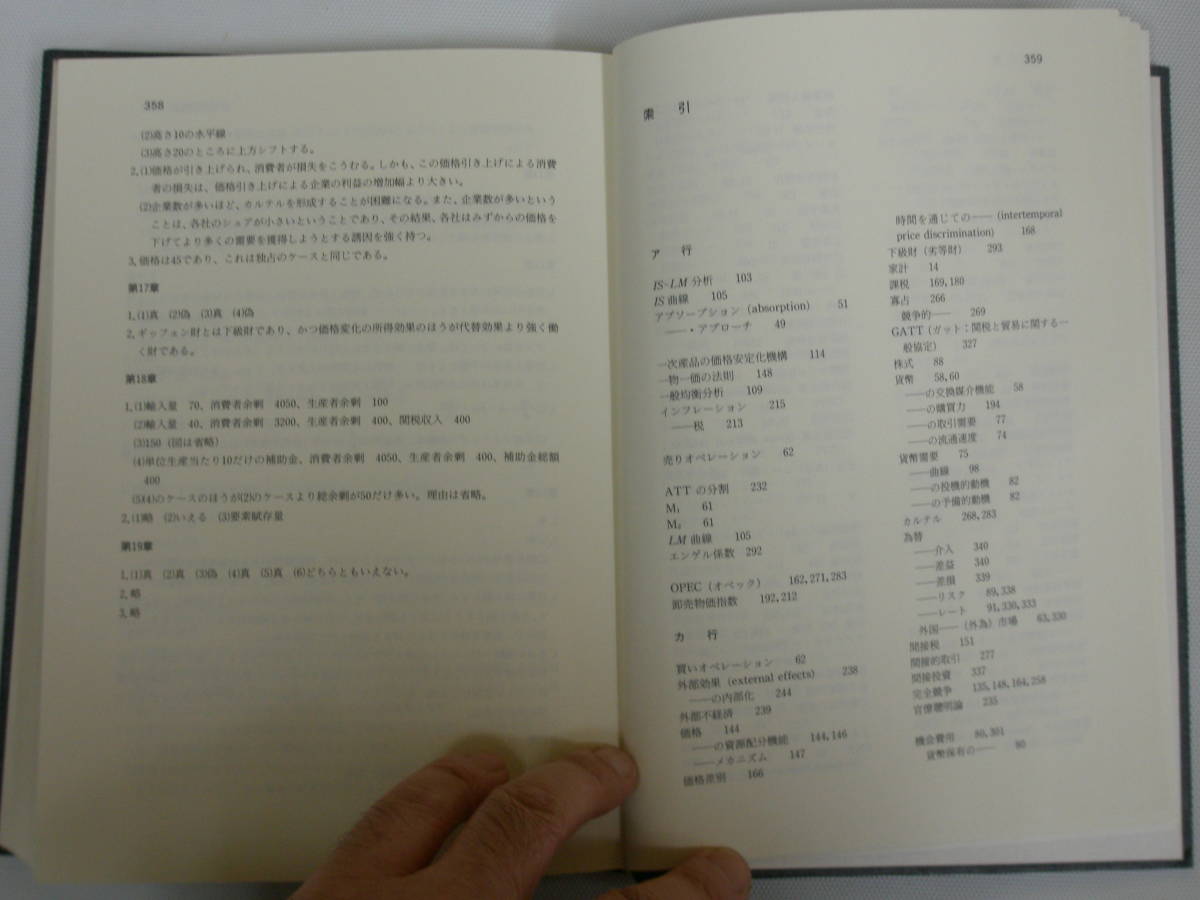 358
(2)高さ10の水平線
(3)高さ20のところに上方シフトする。
2.(1)価格が引き上げられ、消費者が損失をこうむる。しかも、この価格引き上げによる消費
者の損失は、価格引き上げによる企業の利益の増加幅より大きい。
(2)企業数が多いほど、カルテルを形成することが困難になる。また、企業数が多いという
ことは、各社のシェアが小さいということであり、その結果、各社はみずからの価格を
下げてより多くの需要を獲得しようとする誘因を強く持つ。
3.価格は45であり、これは独占のケースと同じである。
第17章
1.(1)真 (2)偽 (3)真 (4)偽
2.ギッフェン財とは下級財であり、かつ価格変化の所得効果のほうが代替効果より強く働
く財である。
第18章
1.(1)輸入量 70、消費者余剰 4050、生産者余剰 100
(2)輸入量 40、消費者余剰 3200、生産者余剰 400、関税収入 400
(3)150(図は省略)
(4)単位生産当たり10だけの補助金、消費者余剰 4050、生産者余剰 400、補助金総額
400
(5)(4)のケースのほうが(2)のケースより総余剰が50だけ多い。理由は省略。
2.(1)略 (2)いえる (3)要素賦存量
第19章
1.(1)真 (2)真 (3)偽 (4)真 (5)真 (6)どちらともいえない。
2.略
3.略
359
索 引
ア 行
IS-LM 分析 103
IS 曲線 105
アブソープション(absorption) 51
——・アプローチ 49
一次産品の価格安定化機構 114
一物一価の法則 148
一般均衡分析 109
インフレーション 215
——税 213
売りオペレーション 62
ATT の分割 232
M₁ 61
M₂ 61
LM 曲線 105
エンゲル係数 292
OPEC(オペック) 162,271,283
卸売物価指数 192,212
カ 行
買いオペレーション 62
外部効果(external effects) 238
——の内部化 244
外部不経済 239
価格 144
——の資源配分機能 144,146
——メカニズム 147
価格差別 166
時間を通じての——(intertemporal
price discrimination) 168
下級財(劣等財) 293
家計 14
課税 169,180
寡占 266
競争的—— 269
GATT(ガット:関税と貿易に関する一
般協定) 327
株式 88
貨幣 58,60
——の交換媒介機能 58
——の購買力 194
——の取引需要 77
——の流通速度 74
貨幣需要 75
——曲線 98
——の投機的動機 82
——の予備的動機 82
カルテル 268,283
為替
——介入 340
——差益 340
——差損 339
——リスク 89,338
——レート 91,330,333
外国——(外為)市場 63,330
間接税 151
間接的取引 277
間接投資 337
完全競争 135,148,164,258
官僚聡明論 235
機会費用 80,301
貨幣保有の—— 80